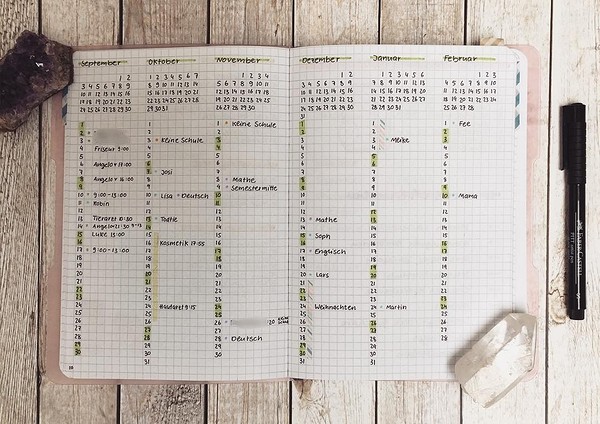 September
1 2
3 4 5 6 7 8 9
10 11 12 13 14 15 16
17 18 19 20 21 22 23
24 25 26 27 28 29 30
1
2
3
4 Friseur 9:00
5
6 Angelo 17:00
7
8
9
10 9:00-13:00
11 Robin
12
13 Tierarzt 10:30
14 Angelo 21:30
15 Luke 13:00
16
17 9:00-13:00
18
19
20
21
22
23
24
25
26
27
28
29
30
Oktober
1 2 3 4 5 6 7
8 9 10 11 12 13 14
15 16 17 18 19 20 21
22 23 24 25 26 27 28
29 30 31
1
2
3 Keine Schule
4
5
6
7 Josi
8
9
10 Lisa Deutsch
11
12
13
14
15
16 Kosmetik 17:55
17
18
19
20
21
22
23
24 Hudora! 9:15
25
26
27
28
29
30
31
November
1 2 3 4
5 6 7 8 9 10 11
12 13 14 15 16 17 18
19 20 21 22 23 24 25
26 27 28 29 30
1 Keine Schule
2
3
4
5
6
7
8 Mathe
9 Semestermitte
10
11
12
13
14
15
16
17
18
19
20
21
22
23
24
25
26
27
28 Deutsch
29
30
Dezember
1 2
3 4 5 6 7 8 9
10 11 12 13 14 15 16
17 18 19 20 21 22 23
24 25 26 27 28 29 30
31
1
2
3
4
5
6
7
8
9
10
11
12
13 Mathe
14
15 Soph
16
17 Englisch
18
19
20 Lars
21
22
23
24 Weihnachten
25
26
27
28
29
30
31
Januar
1 2 3 4 5 6
7 8 9 10 11 12 13
14 15 16 17 18 19 20
21 22 23 24 25 26 27
28 29 30 31
1
2
3 Meike
4
5
6
7
8
9
10
11
12
13
14
15
16
17
18
19
20
21
22
23
24 Martin
25
26
27
28
29
30
31
Februar
1 2 3
4 5 6 7 8 9 10
11 12 13 14 15 16 17
18 19 20 21 22 23 24
25 26 27 28
1 Fee
2
3
4
5
6
7
8
9
10 Mama
11
12
13
14
15
16
17
18
19
20
21
22
23
24
25
26
27
28
FABER-CASTELL